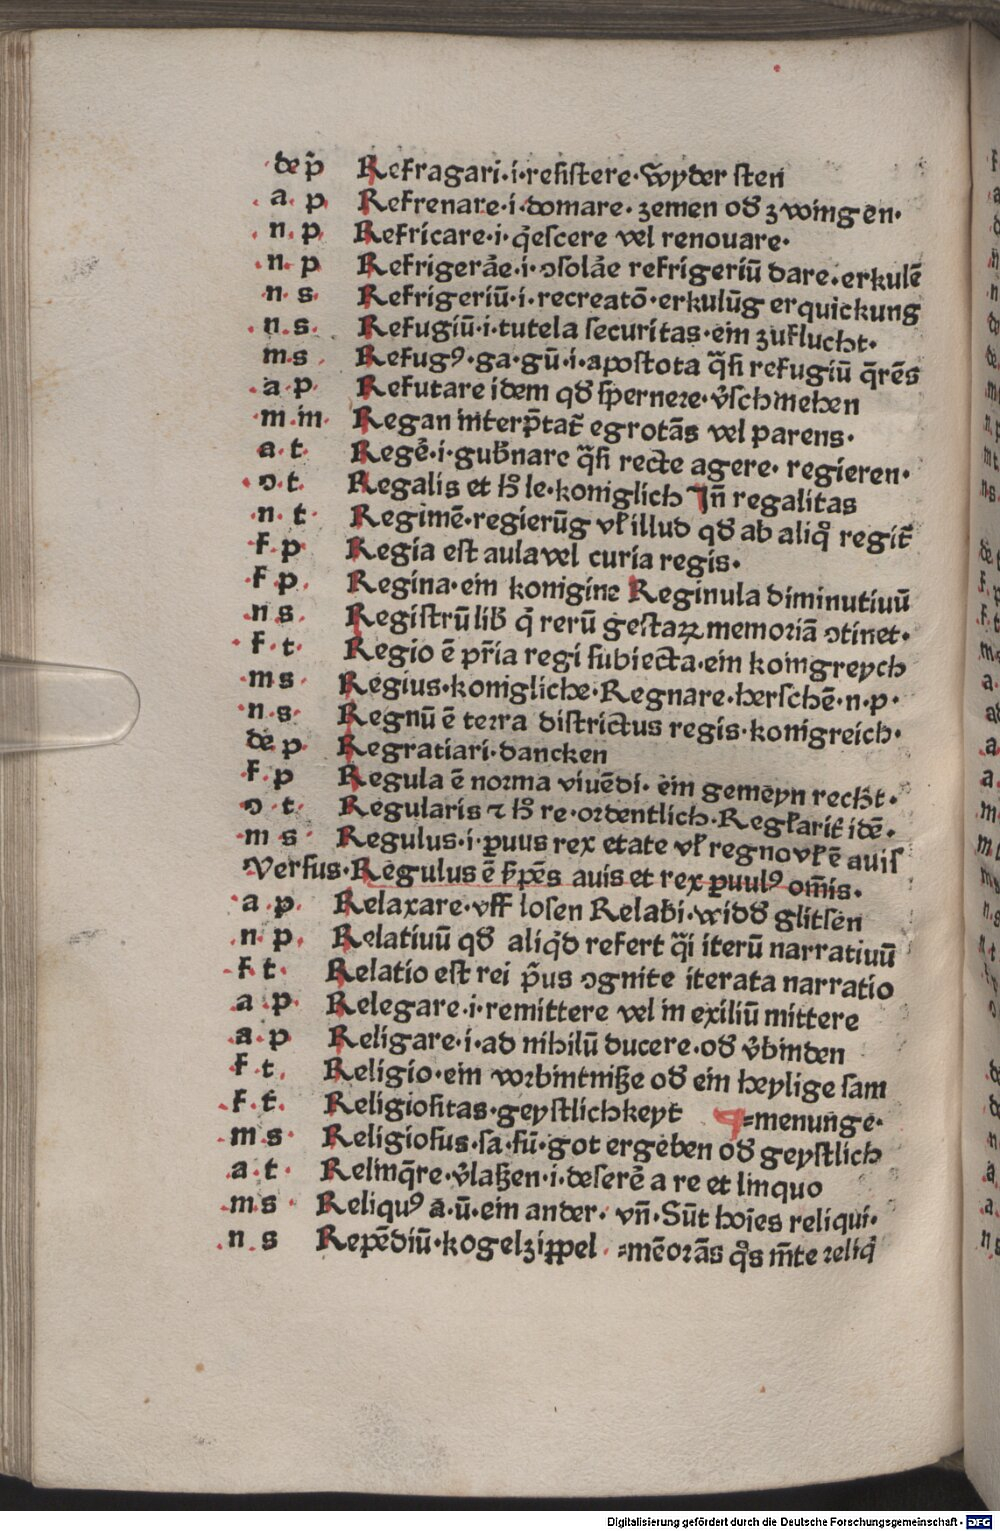 de p̃ Refragari·i·resistere·Wyder sten
a· p· Refrenare·i·domare·zemen od̕ zwingen·
n·p· Refricare·i·q̇escere vel renouare·
n·p Refrigerãe·i·ↄsolãe refrigeriū dare·erkulē
n·s· Refrigeriū·i·recreatō·erkulūg erquickung
n·s· Refugiū·i·tutela securitas·ein zuflucht·
m·s· Refugꝰ·ga·gū·i·apostota q̃si refugiū q̄rēs
a·p· Refutare idem qd̕ spernere·v̕schmehen
m·m· Regan interp̄tat̄ egrotās vel parens·
a·t· Regẽ·i·gub̕nare q̃si recte agere· regieren·
ↄ·t· Regalis et h̕ le·koniglich Jn̄ regalitas
n·t· Regimē·regierūg vł illud qd̕ ab aliq̊ regit̄
F·p· Regia est aula vel curia regis·
F·p· Regina·ein konigine Reginula diminutiuū
n·s· Registrū lib̕ q̇ rerū gestaꝝ memoriā ↄtinet·
F·t· Regio ē pr̄ia regi subiecta·ein koingreych
m·s· Regius·konigliche·Regnare·herschē·n·p·
n·s· Regnū ē terra districtus regis·konigreich·
de p· Regratiari·dancken
F·p Regula ē norma viuēdi· ein gemeyn recht·
ↄ·t· Regularis ⁊ h̕ re·ordentlich·Regłarit̄ idē·
m·s· Regulus·i·ꝑuus rex etate vł regno vł ē auis
Versus·Regulus ē s̕pēs auis et rex ꝑuulꝰ om̄is·
a·p· Relaxare·vff losen Relabi·widd̕ glitsen
n·p· Relatiuū qd̕ aliq̇d refert q̃i iterū narratiuū
F·t· Relatio est rei p̃us ↄgnite iterata narratio
a·p· Relegare·i·remittere vel in exiliū mittere
a·p Religare·i·ad nihilū ducere·od̕ v̕binden
F·t· Religio·ein vorbintniße od̕ ein heylige sam
F·t· Religiositas·geystlichkeyt ¶=menunge·
m·s· Religiosus·sa·sū·got ergeben od̕ geystlich
a·t· Relinq̄re·v̕laßen·i·deserē a re et linquo
m·s· Reliquꝰ a·ū·ein ander· vn̄·Sūt hoīes reliqui·
n·s Repēdiū·kogelzippel·=mēorās q̊s m̄te reliq̇
Digitalisierung gefördert durch die Deutsche Forschungsgemeinschaft · DFG